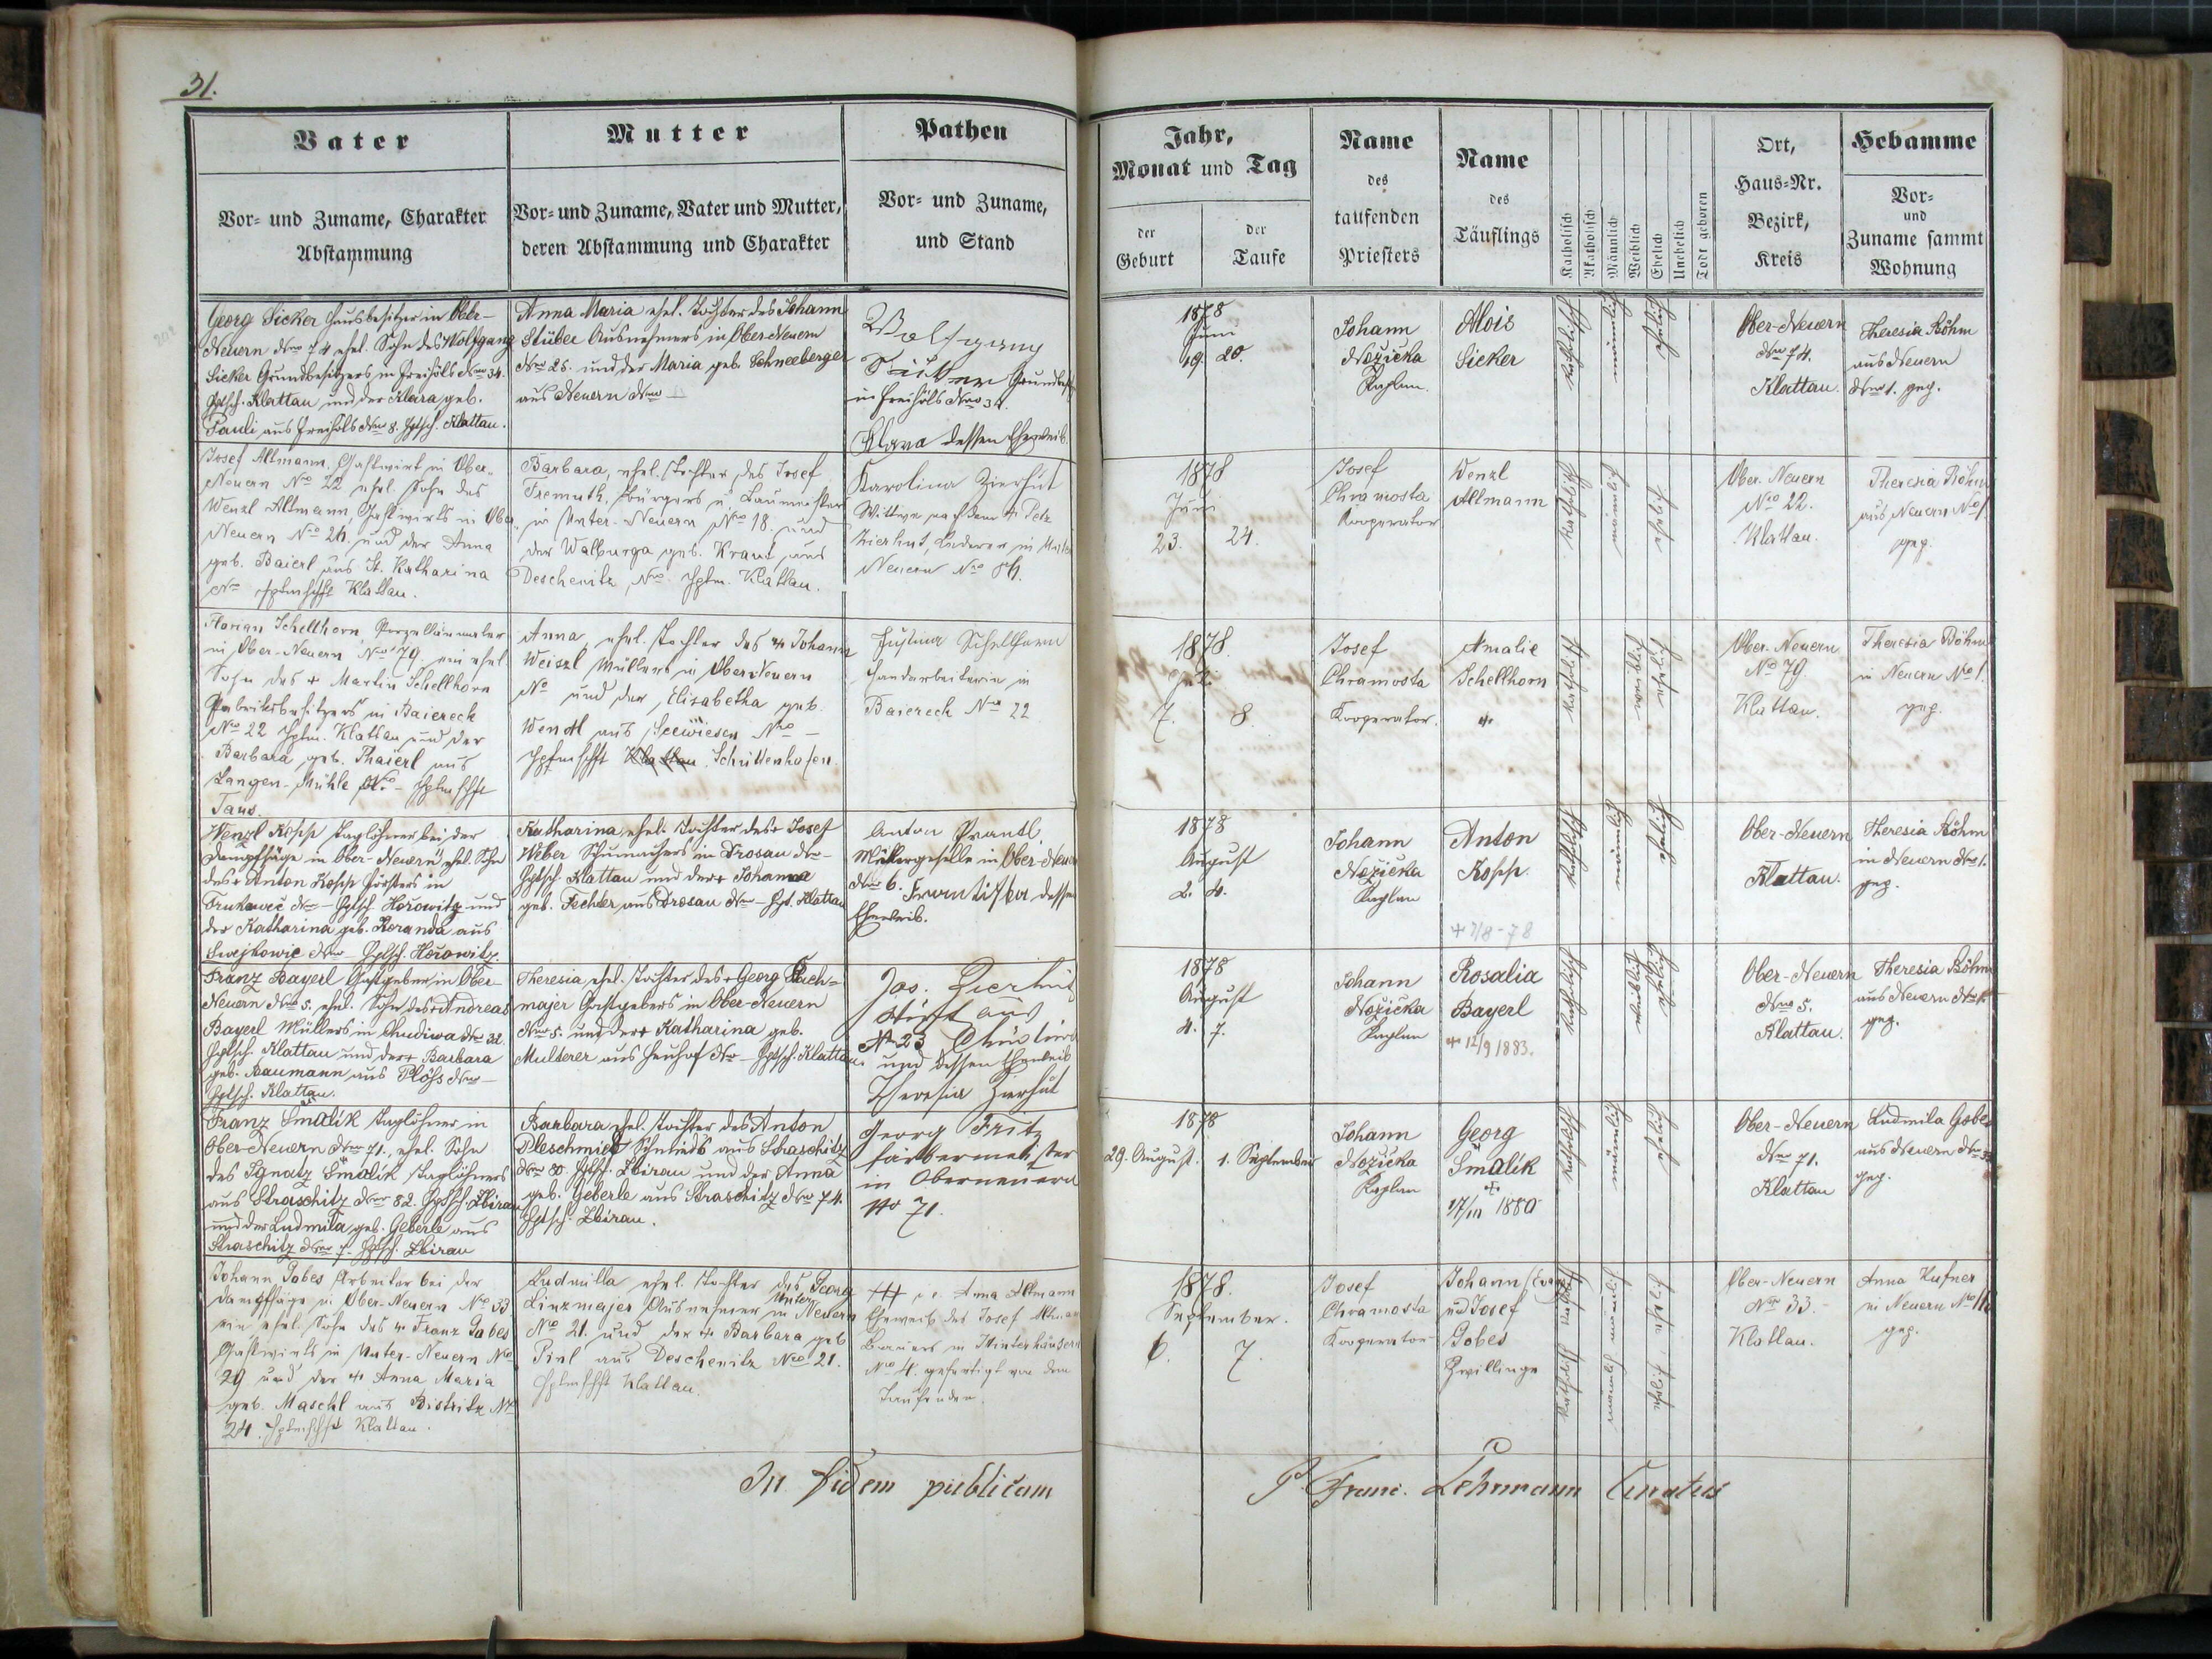 31.
Vater
Vor- und Zuname, Charakter
Abstammung
Mutter
Vor- und Zuname, Vater und Mutter,
deren Abstammung und Charakter
Pathen
Vor- und Zuname,
und Stand
Georg Sicker Hausbesitzer in Ober-
Neuern Nro 74 ehel. Sohn des Wolfgang
Sicker Grundbesitzers in Freihöls Nro 34.
Hptsch. Klattau und der Klara geb.
Pauli aus Freihöls Nro 8. Hptsch. Klattau.
Anna Maria ehel. Tochter des Johann
Stüber Ausnehmers in Ober-Neuern
Nro 25. und der Maria geb. Schneeberger
aus Neuern Nro —
Wolfgang
Grundbes.
in Freihöls Nro 34.
Klara dessen Eheweib.
Josef Altmann, Gastwirt in Ober-
Neuern No 22 ehel. Sohn des
Wenzl Altmann, Gastwirts in Ober-
Neuern No 26, und der Anna
geb. Baierl aus St. Katharina
No Hptmschft Klattau.
Barbara, ehel. Tochter des Josef
Fremuth, Bürgers u. Baumeisters
in Unter-Neuern No 18. und
der Walburga geb. Kraus aus
Deschenitz No. Hptm. Klattau.
Karolina Zierhut
Wittwe nach dem † Petr
Zierhut, Lederer in Unter
Neuern No
Florian Schellhorn, Porzellanmaler
in Ober-Neuern No 79, ein ehel.
Sohn des † Martin Schellhorn
Fabriksbesitzers in Baiereck
No 22 Hptm. Klattau und der
Barbara, geb. Thaierl aus
Langen-Mühle No – Hptmschft
Taus.
Anna, ehel. Tochter des † Johann
Weiszl Müllers in Ober-Neuern
No und der Elisabetha geb.
Wendl aus Seewiesen No –
Hptmschft Klattau Schüttenhofen
Justina Schellhorn
Handarbeiterin in
Baiereck No 22
Wenzl Kopp Taglöhner bei der
Dampfsäge in Ober-Neuern ehel. Sohn
des † Anton Kopp Försters in
Nro – Hptsch. Hořowitz und
der Katharina geb. Koranda aus
Swejkowic Nro – Hptsch. Hořowitz.
Katharina ehel. Tochter des † Josef
Weber Schumachers in Drosau Nro –
Hptsch Klattau und der † Johanna
geb. Fechter aus Drosau Nro – Hpt. Klattau
Anton Prantl
Müllergeselle in Ober-Neuern
Nro 6. Frantiska dessen
Eheweib.
Franz Bayerl Gastgeber in Ober-
Neuern Nro 5. ehel. Sohn des † Andreas
Bayerl Müllers in Chudiwa Nro 32.
Hptsch. Klattau und der † Barbara
geb. Baumann aus Plöss Nro –
Hptsch. Klattau.
Theresia, ehel. Tochter des † Georg
majer Gastgebers in Ober-Neuern
Nro 5. und der † Katharina geb.
Mulderer aus Heuhof Nro – Hptsch. Klattau.
Jos. Zierhut
Wirt aus
No 23
und dessen Eheweib
Theresia Zierhut
Franz Smalík Taglöhner in
Ober-Neuern Nro 71., ehel. Sohn
des Ignatz Smalík Taglöhners
aus Straschitz Nro 82. Hptsch. Zbirau
und der Ludmila geb. Geberle aus
Straschitz Nro 7. Hptsch. Zbirau
Barbara ehel. Tochter des Anton
Pleschmidt Schmieds aus Straschitz
Nro 80. Hptsch. Zbirau und der Anna
geb. Geberle aus Straschitz Nro 74.
Hptsch. Zbirau.
Georg Fritz
färbermeister
in Oberneuern
No 71.
Johann Gobes Arbeiter bei der
Dampfsäge in Ober-Neuern No 33
ein ehel. Sohn des † Franz Gabes
Gastwirts in Unter-Neuern No
29 und der † Anna Maria
geb. Maschl aus Bistritz No
24. Hptmschft Klattau.
Ludmilla ehel. Tochter des Georg
Linzmajer Ausnehmer in Unter Neuern
No 21. und der † Barbara geb
Pinl aus Deschenitz No 21.
Hptmschft Klattau.
††† Anna Altmann
Eheweib des Josef Altmann
Bauers in Hinterhäusern
No 4. gefertigt von dem
Taufenden.
In fidem publicam
Jahr,
Monat und Tag
der
Geburt
der
Taufe
Name
des
taufenden
Priesters
Name
des
Täuflings
Katholisch
Akatholisch
Männlich
Weiblich
Ehelich
Unehelich
Todt geboren
Ort,
Haus-Nr.
Bezirk,
Kreis
Hebamme
Vor-
und
Zuname sammt
Wohnung
1878
Juni
19. 20.
Johann
Nožička
Kaplan.
Alois
Sicker
katholisch
männlich
ehelich
Ober-Neuern
Nro 74.
Klattau.
Theresia Böhm
aus Neuern
Nro 1. gep.
1878
Juni
23. 24.
Josef
Chramosta
Kooperator
Wenzl
Altmann
katholisch
männlich
ehelich
Ober-Neuern
No 22.
Klattau.
Theresia Böhm
aus Neuern No 1
gep.
1878.
Juli
7. 8.
Josef
Chramosta
Kooperator.
Amalie
Schellhorn
†
katholisch
weiblich
ehelich
Ober-Neuern
No 79.
Klattau.
Theresia Böhm
in Neuern No 1.
gep.
1878
August
2. 4.
Johann
Nožička
Kaplan
Anton
Kopp.
† 7/8 - 78
katholisch
männlich
ehelich
Ober-Neuern
Klattau.
Theresia Böhm
in Neuern Nro 1.
gep.
1878
August
4. 7.
Johann
Nožička
Kaplan
Rosalia
Bayerl
† 12/9 1883.
katholisch
weiblich
ehelich
Ober-Neuern
Nro 5.
Klattau.
Theresia Böhm
aus Neuern Nro 1.
gep.
1878
29. August. 1. September
Johann
Nožička
Kaplan
Georg
Smalík
†
17/III 1880
katholisch
männlich
ehelich
Ober-Neuern
Nro 71.
Klattau
Ludmila Gobes
aus Neuern Nro
gep.
1878.
September.
6. 7.
Josef
Chramosta
Kooperator
Johann
und Josef
Gobes
Zwillinge
katholisch katholisch
männlich männlich
ehelich ehelich
Ober-Neuern
No 33.-
Klattau.
Anna Kufner
in Neuern No
gep.
P. Franc. Lehrmann Curatus